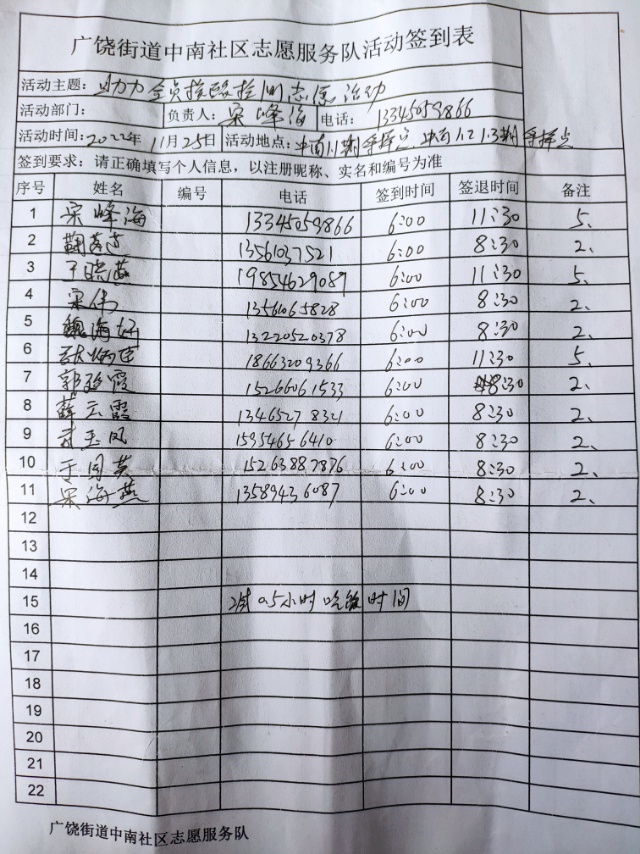 广饶街道中南社区志愿服务队活动签到表
活动主题: 助力全员核酸检测志愿活动
活动部门: 负责人: 宋峰海 电话: 13345059866
活动时间: 2022年11月25日 活动地点: 中南1.1期采样点 中南1.2 1.3期采样点
签到要求: 请正确填写个人信息，以注册昵称、实名和编号为准
序号 姓名 编号 电话 签到时间 签退时间 备注
1 宋峰海 13345059866 6:00 11:30 5、
2 13561037521 6:00 8:30 2、
3 于晓燕 19854629089 6:00 11:30 5、
4 宋伟 13561065828 6:00 8:30 2、
5 魏海好 13220520378 6:00 8:30 2、
6 18663209366 6:00 11:30 5、
7 郭 霞 15266061533 6:00 8:30 2、
8 薛云霞 13465278321 6:00 8:30 2、
9 玉凤 15954656410 6:00 8:30 2、
10 于同英 15263887876 6:00 8:30 2、
11 宋海燕 13589436087 6:00 8:30 2、
12
13
14
15 减0.5小时吃饭时间
16
17
18
19
20
21
22
广饶街道中南社区志愿服务队